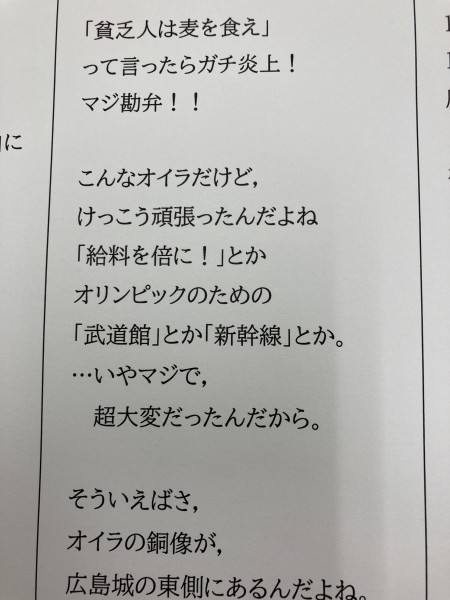 に
「貧乏人は麦を食え」
って言ったらガチ炎上！
マジ勘弁！！
こんなオイラだけど，
けっこう頑張ったんだよね
「給料を倍に！」とか
オリンピックのための
「武道館」とか「新幹線」とか。
…いやマジで，
超大変だったんだから。
そういえばさ，
オイラの銅像が，
広島城の東側にあるんだよね。